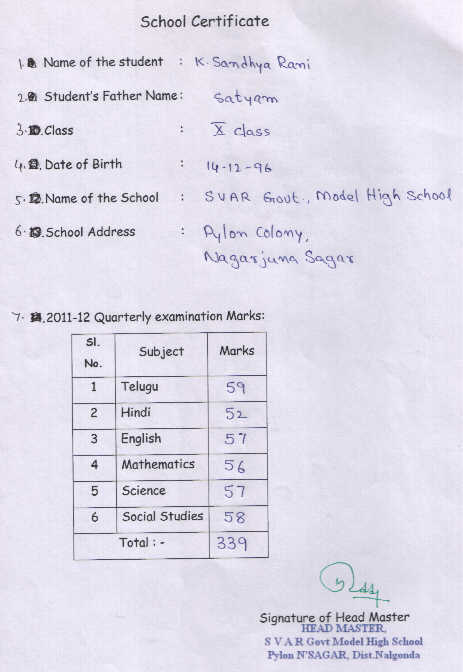 School Certificate
1. Name of the student : K. Sandhya Rani
2. Student's Father Name : Satyam
3. Class : X class
4. Date of Birth : 14-12-96
5. Name of the School : SVAR Govt., Model High School
6. School Address : Pylon Colony,
Nagarjuna Sagar
7. 2011-12 Quarterly examination Marks:
Sl. No. Subject Marks
1 Telugu 59
2 Hindi 52
3 English 57
4 Mathematics 56
5 Science 57
6 Social Studies 58
Total : - 339
Signature of Head Master
HEAD MASTER,
S V A R Govt Model High School
Pylon N'SAGAR, Dist.Nalgonda